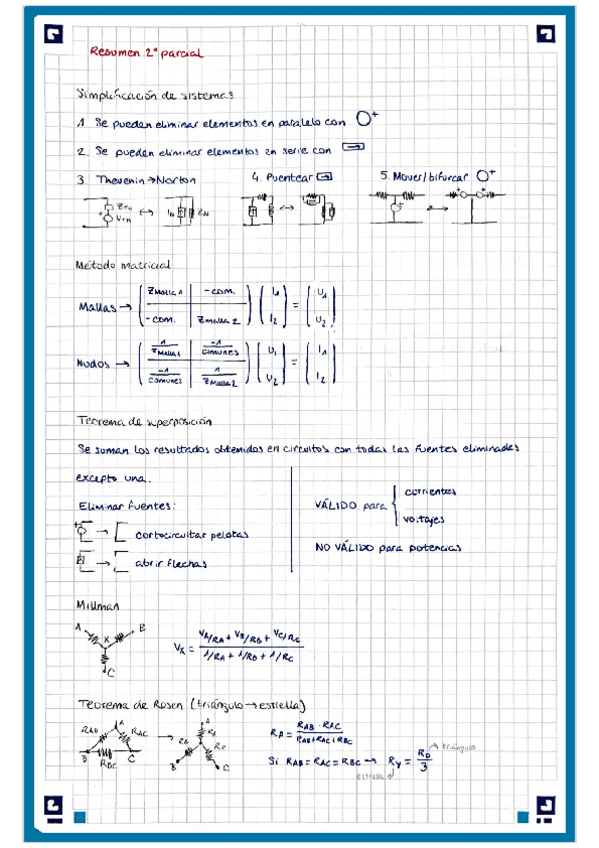 Resumen 2º parcial
Simplificación de sistemas
1. Se pueden eliminar elementos en paralelo con +
2. Se pueden eliminar elementos en serie con
3. Thevenin → Norton
4. Puentear
5. Mover/bifurcar +
ZTH
VTH
IN
ZN
Método matricial
Mallas → ( ZMalla 1 | -com. ) ( I1 ) = ( U1 )
( -com. | ZMalla 2 ) ( I2 ) ( U2 )
Nudos → ( 1/ZMalla1 | -1/comunes ) ( U1 ) = ( I1 )
( -1/comunes | 1/ZMalla2 ) ( U2 ) ( I2 )
Teorema de superposición
Se suman los resultados obtenidos en circuitos con todas las fuentes eliminadas
excepto una.
Eliminar fuentes:
→ cortocircuitar pelotas
→ abrir flechas
VÁLIDO para { corrientes
voltajes
NO VÁLIDO para potencias
Millman
A
B
K
C
VK = (VA/RA + VB/RB + VC/RC) / (1/RA + 1/RB + 1/RC)
Teorema de Rosen (triángulo → estrella)
A
RAB
RAC
B
C
RBC
→
A
RA
RB
RC
B
C
RA = RAB · RAC / RAB+RAC+RBC
Si RAB = RAC = RBC → RY = RD / 3
triángulo
estrella